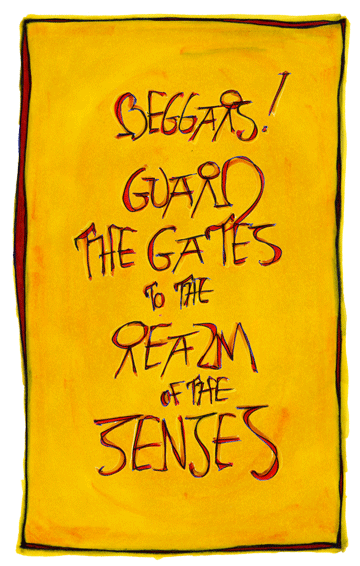 BEGGARS!
GUARD
THE GATES
TO THE
REALM
OF THE
SENSES